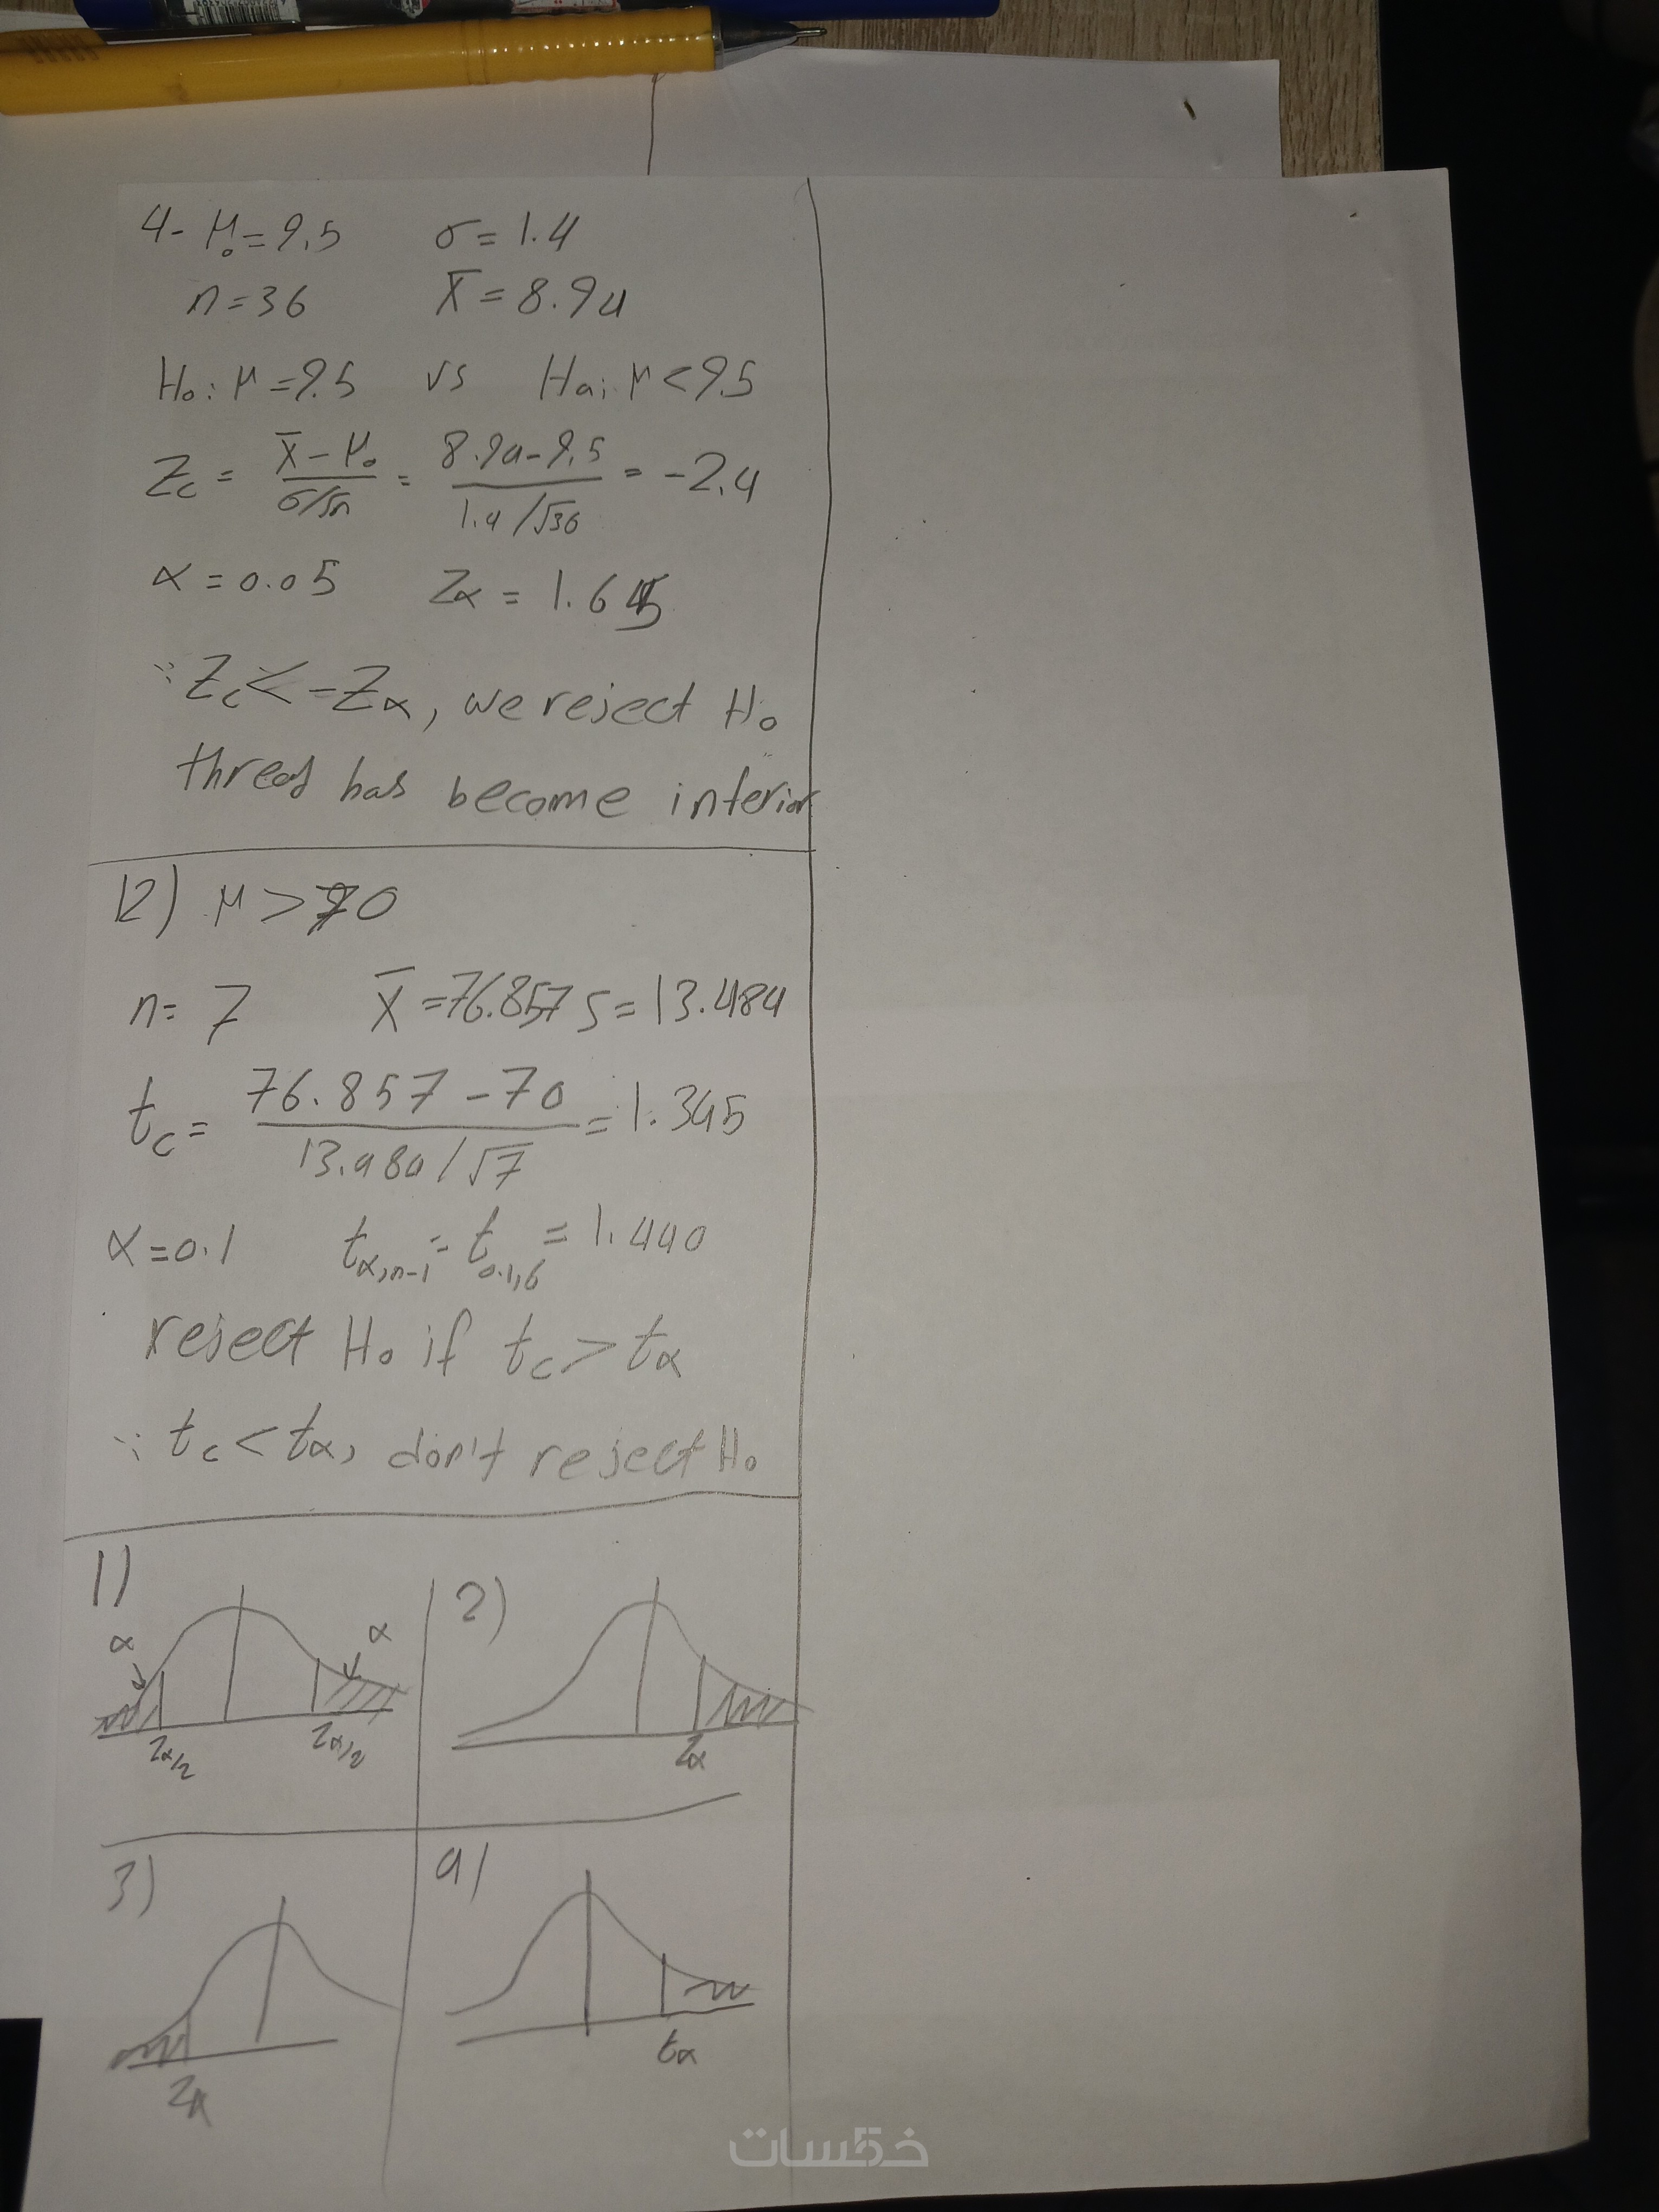 4- μ₀ = 9.5 σ = 1.4
n = 36 X̄ = 8.94
H₀ : μ = 9.5 vs Ha: μ < 9.5
Zc = (X̄ - μ₀)/(σ/√n) = (8.94 - 9.5)/(1.4/√36) = -2.4
α = 0.05 Zα = 1.645
∵ Zc < -Zα, we reject H₀
thread has become inferior
12) μ > 70
n = 7 X̄ = 76.857 S = 13.484
tc = (76.857 - 70)/(13.484/√7) = 1.345
α = 0.1 tα,n-1 = t0.1,6 = 1.440
reject H₀ if tc > tα
∵ tc < tα, don't reject H₀
1) 2)
α α
Zα/2 Zα/2 Zα
3) 4)
Zα tα
خمسات